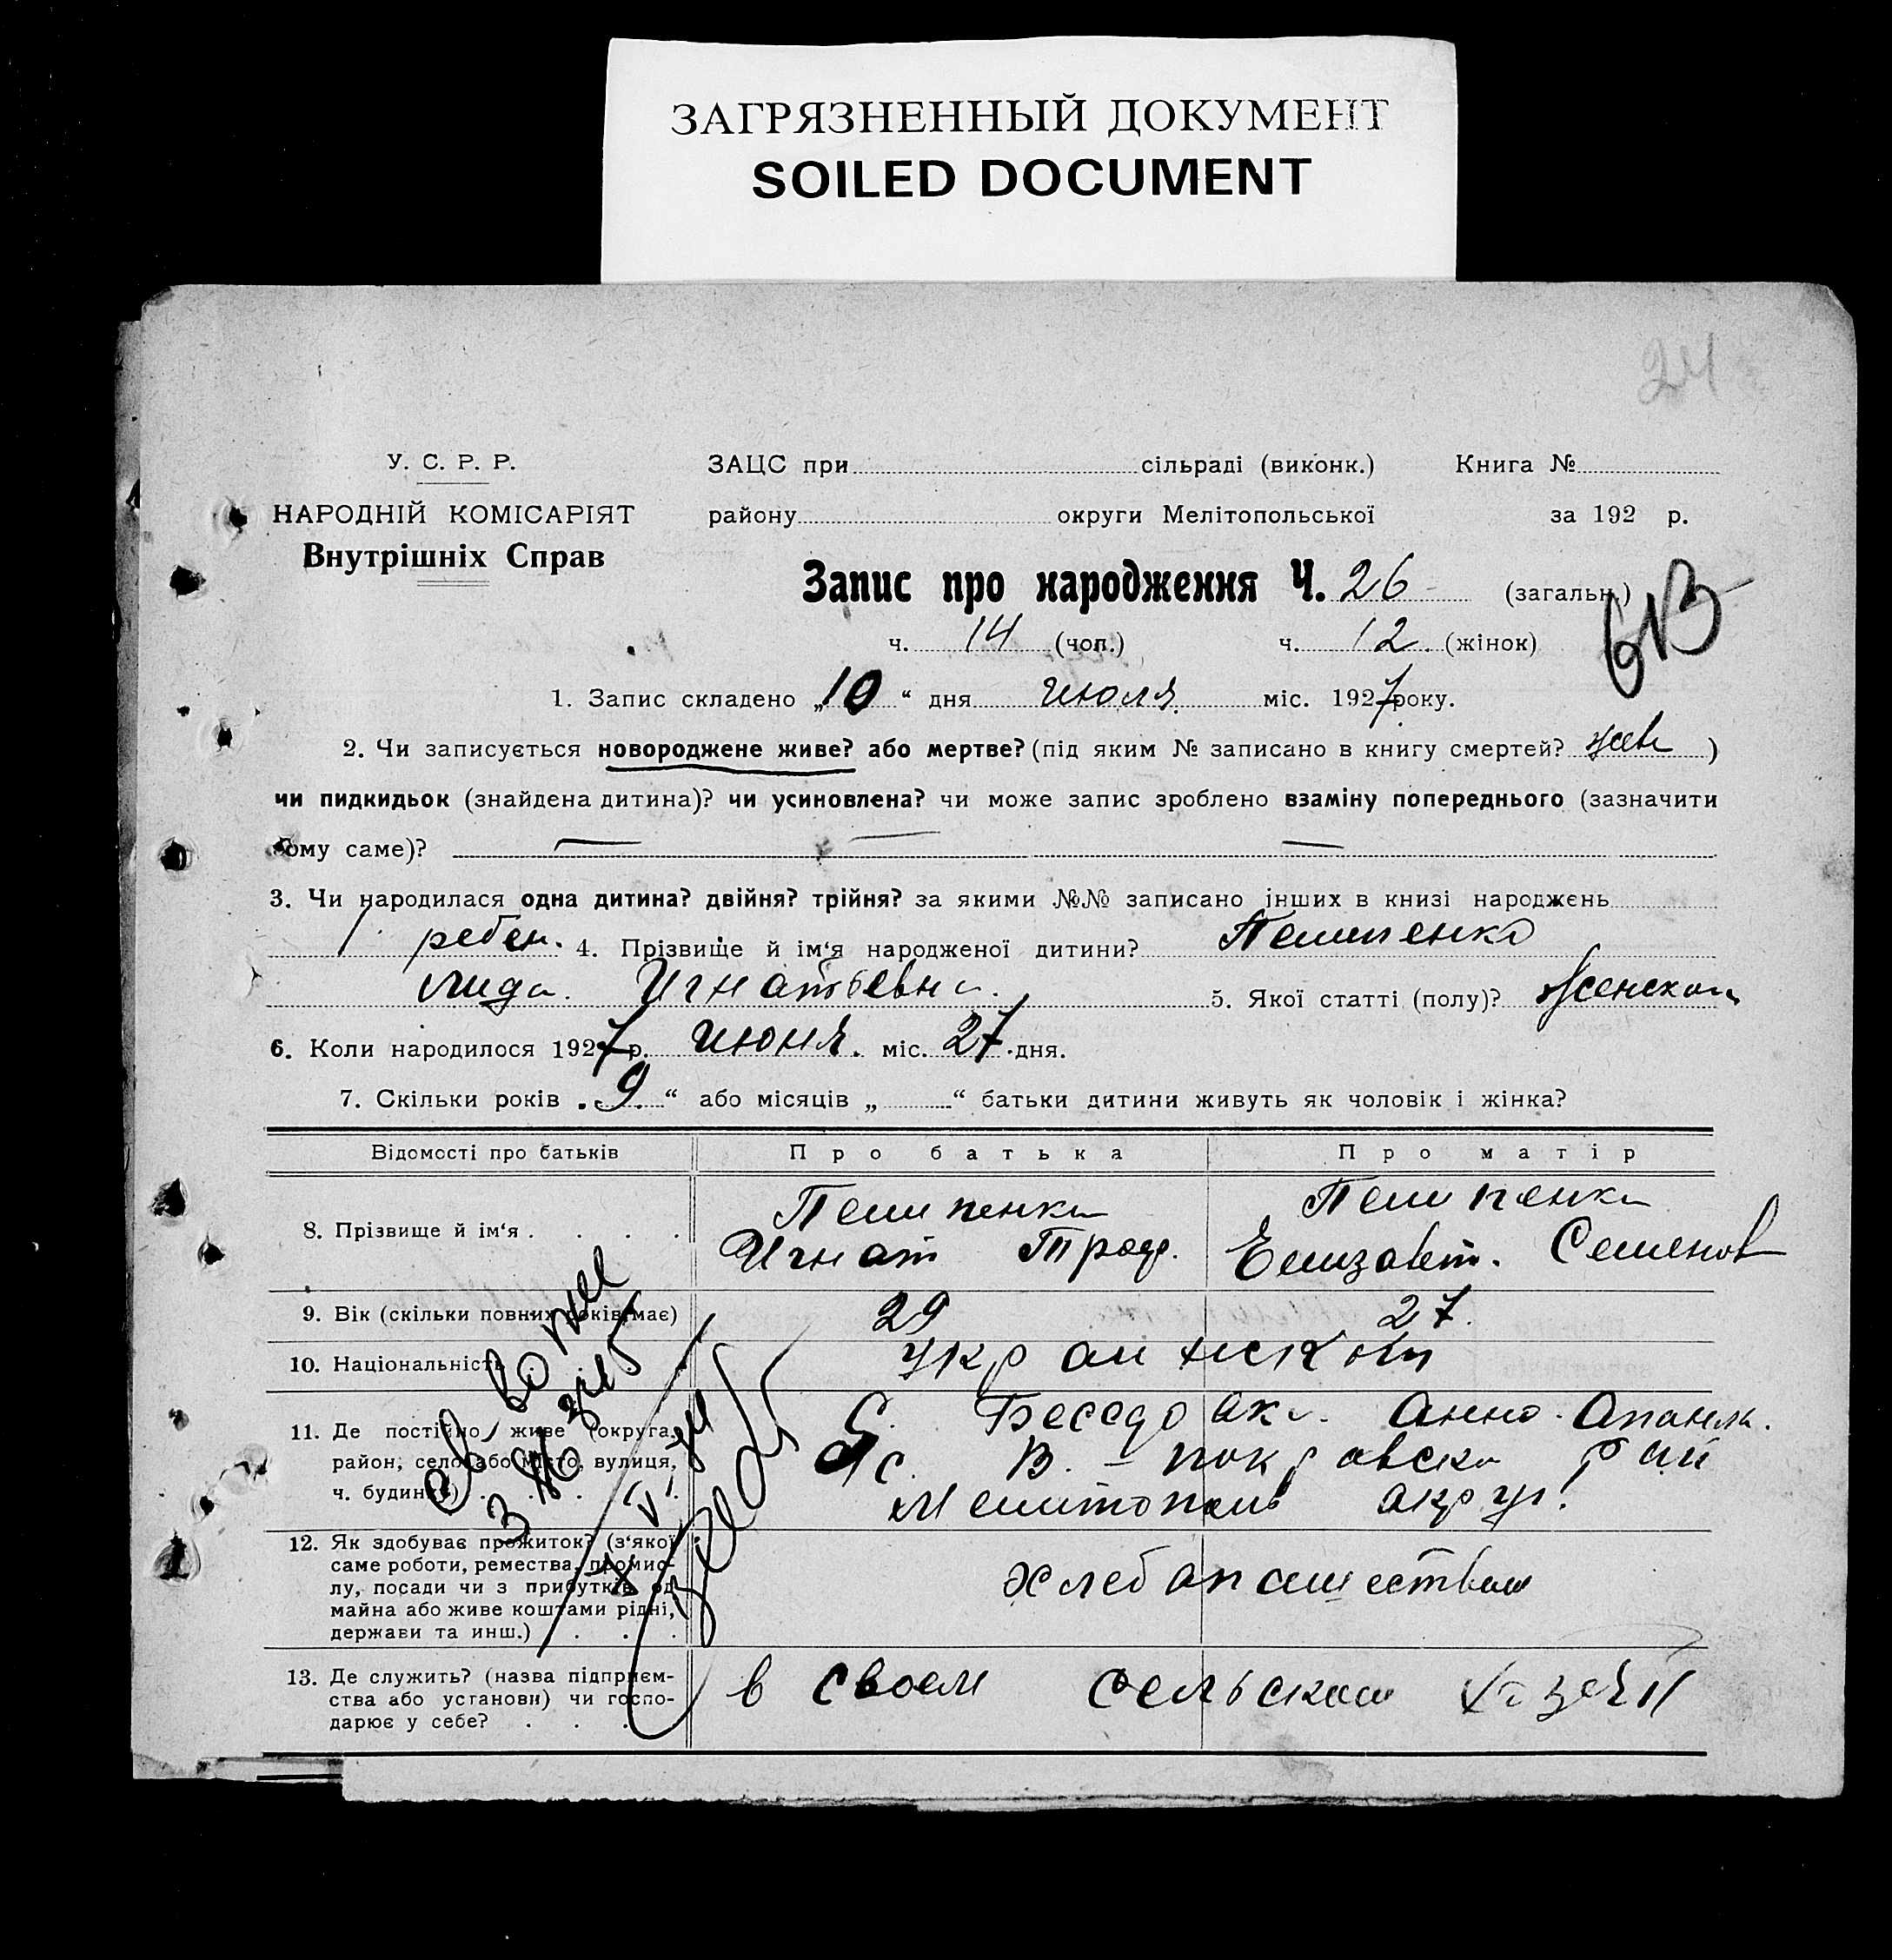 ЗАГРЯЗНЕННЫЙ ДОКУМЕНТ
SOILED DOCUMENT
24
У. С. Р. Р.
НАРОДНІЙ КОМІСАРІЯТ
Внутрішніх Справ
ЗАЦС при сільраді (виконк.) Книга №
району округи Мелітопольської за 192 р.
Запис про народження Ч. 26 (загальн.)
ч. 14 (чол.) ч. 12 (жінок)
1. Запис складено „10“ дня июля міс. 1927 року.
2. Чи записується новороджене живе? або мертве? (під яким № записано в книгу смертей? )
чи пидкидьок (знайдена дитина)? чи усиновлена? чи може запис зроблено взаміну попереднього (зазначити
кому саме)? — — —
3. Чи народилася одна дитина? двійня? трійня? за якими №№ записано інших в книзі народжень
1 ребен. 4. Прізвище й ім‘я народженої дитини?
Лида Игнатьевна 5. Якої статті (полу)? Женском
6. Коли народилося 1927 р. июня. міс. 27 дня.
7. Скільки років „9“ або місяців „ “ батьки дитини живуть як чоловік і жінка?
Відомості про батьків Про батька Про матір
8. Прізвище й ім‘я . . . .
Игнат Троф. Елизавет. Семенов
9. Вік (скільки повних років має) 29 27.
10. Національність
11. Де постійно живе (округа, с.
район, село або місто, вулиця, В. - покровска рай
ч. будинку) . . . . Мелитополь округ.
12. Як здобуває прожиток? (з‘якої
саме роботи, ремества, промис-
лу, посади чи з прибутків од
майна або живе коштами рідні,
держави та инш.) . . .
хлебопашеством
13. Де служить? (назва підприєм- в своем сельском
ства або установи) чи госпо-
дарює у себе? . . .